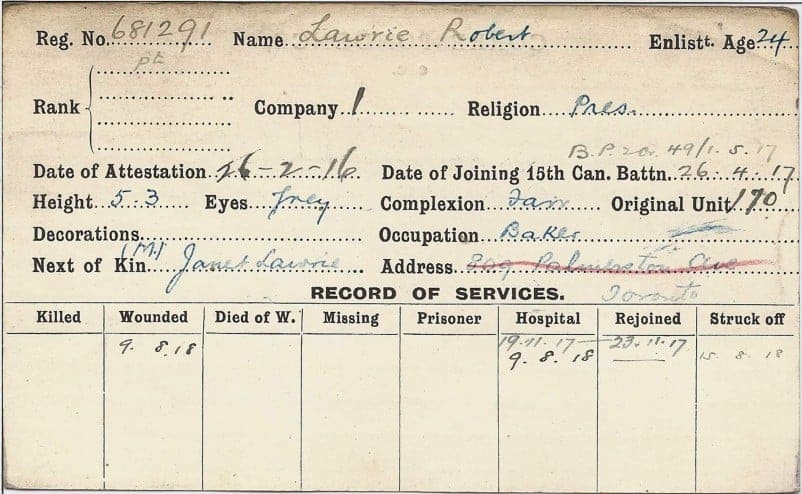 Reg. No. 681291 Name Lawrie Robert Enlistt. Age 24
Pte
Rank Company 1 Religion Pres.
B.P.20. 49/1.5.17
Date of Attestation 26-2-16 Date of Joining 15th Can. Battn. 26.4.17
Height 5.3 Eyes Grey Complexion Fair Original Unit 170
Decorations Occupation Baker
Next of Kin (M) Janet Lawrie Address 809 Palmerston Ave
RECORD OF SERVICES. Toronto
Killed Wounded Died of W. Missing Prisoner Hospital Rejoined Struck off
19.11.17 23.11.17
9.8.18 9.8.18 15.8.18